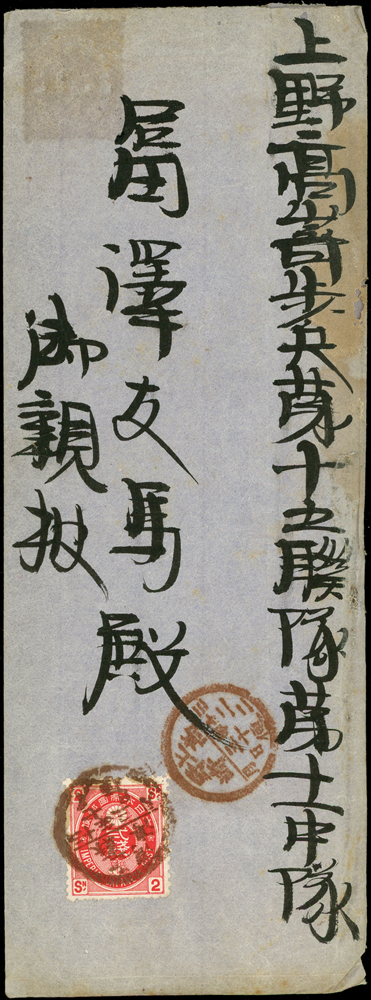 上野高崎歩兵第十五聯隊第十一中隊
澤友馬殿
御親披
IMPER
SN 2